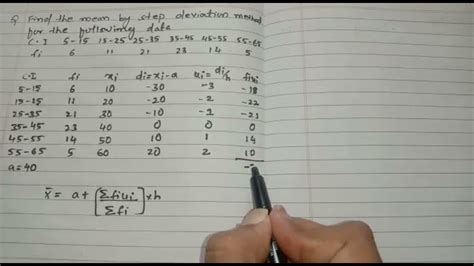 Q Find the mean by step deviation method
for the following data
C.I 5-15 15-25 25-35 35-45 45-55 55-65
fi 6 11 21 23 14 5
C.I fi xi di=xi-a ui=di/h fiui
5-15 6 10 -30 -3 -18
15-25 11 20 -20 -2 -22
25-35 21 30 -10 -1 -21
35-45 23 40 0 0 0
45-55 14 50 10 1 14
55-65 5 60 20 2 10
a=40
x̄ = a+(Σfiui/Σfi)×h